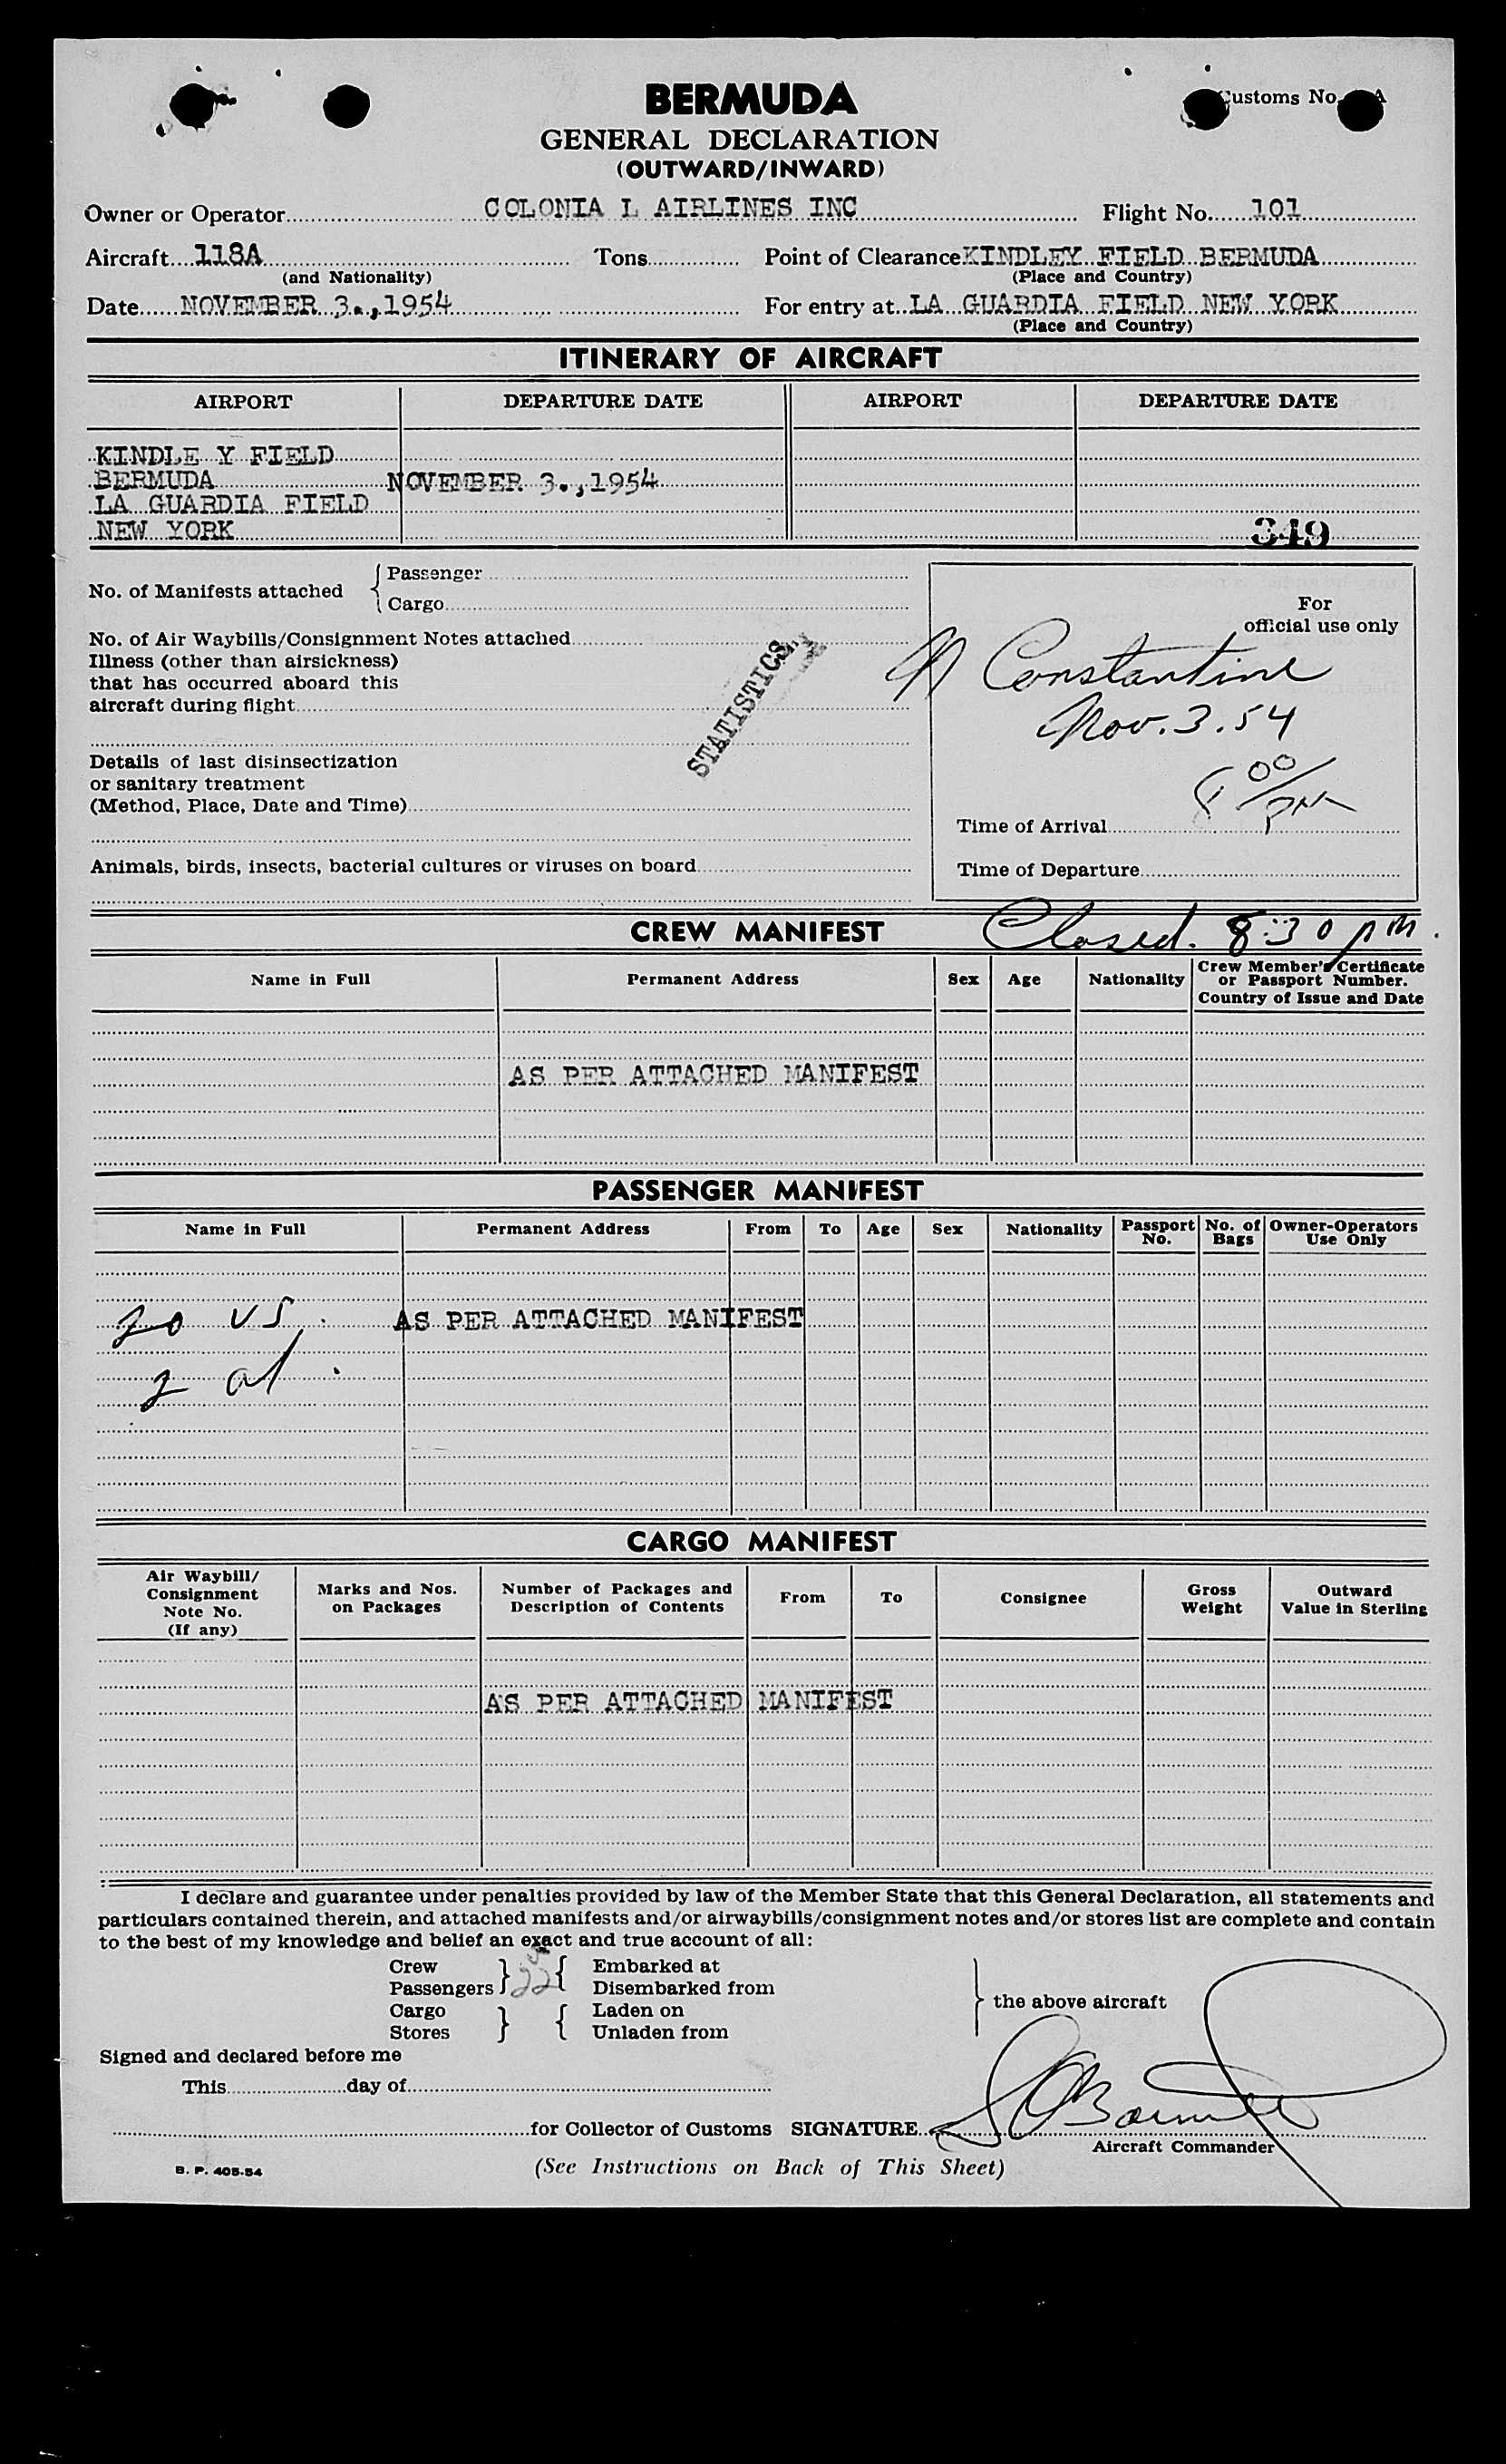 BERMUDA
Customs No. A
GENERAL DECLARATION
(OUTWARD/INWARD)
Owner or Operator COLONIA L AIRLINES INC Flight No. 101
Aircraft 118A Tons Point of Clearance KINDLEY FIELD BERMUDA
(and Nationality) (Place and Country)
Date NOVEMBER 3.,1954 For entry at LA GUARDIA FIELD NEW YORK
(Place and Country)
ITINERARY OF AIRCRAFT
AIRPORT DEPARTURE DATE AIRPORT DEPARTURE DATE
KINDLE Y FIELD
BERMUDA NOVEMBER 3.,1954
LA GUARDIA FIELD
NEW YORK 349
No. of Manifests attached { Passenger
Cargo
For
official use only
No. of Air Waybills/Consignment Notes attached
Illness (other than airsickness)
that has occurred aboard this
aircraft during flight
STATISTICS
Constantine
Nov. 3. 54
Details of last disinsectization
or sanitary treatment
(Method, Place, Date and Time)
8 00/PM
Time of Arrival
Animals, birds, insects, bacterial cultures or viruses on board
Time of Departure
CREW MANIFEST Closed. 8:30 pm.
Name in Full Permanent Address Sex Age Nationality Crew Member's Certificate
or Passport Number.
Country of Issue and Date
AS PER ATTACHED MANIFEST
PASSENGER MANIFEST
Name in Full Permanent Address From To Age Sex Nationality Passport No. No. of Bags Owner-Operators Use Only
20 US. AS PER ATTACHED MANIFEST
2 al.
CARGO MANIFEST
Air Waybill/
Consignment
Note No.
(If any)
Marks and Nos.
on Packages
Number of Packages and
Description of Contents
From To Consignee
Gross
Weight
Outward
Value in Sterling
AS PER ATTACHED MANIFEST
I declare and guarantee under penalties provided by law of the Member State that this General Declaration, all statements and
particulars contained therein, and attached manifests and/or airwaybills/consignment notes and/or stores list are complete and contain
to the best of my knowledge and belief an exact and true account of all:
Crew Embarked at
Passengers } 22 { Disembarked from
the above aircraft
Cargo Laden on
Stores } { Unladen from
Signed and declared before me
This day of
for Collector of Customs SIGNATURE
Aircraft Commander
B. P. 405.54 (See Instructions on Back of This Sheet)